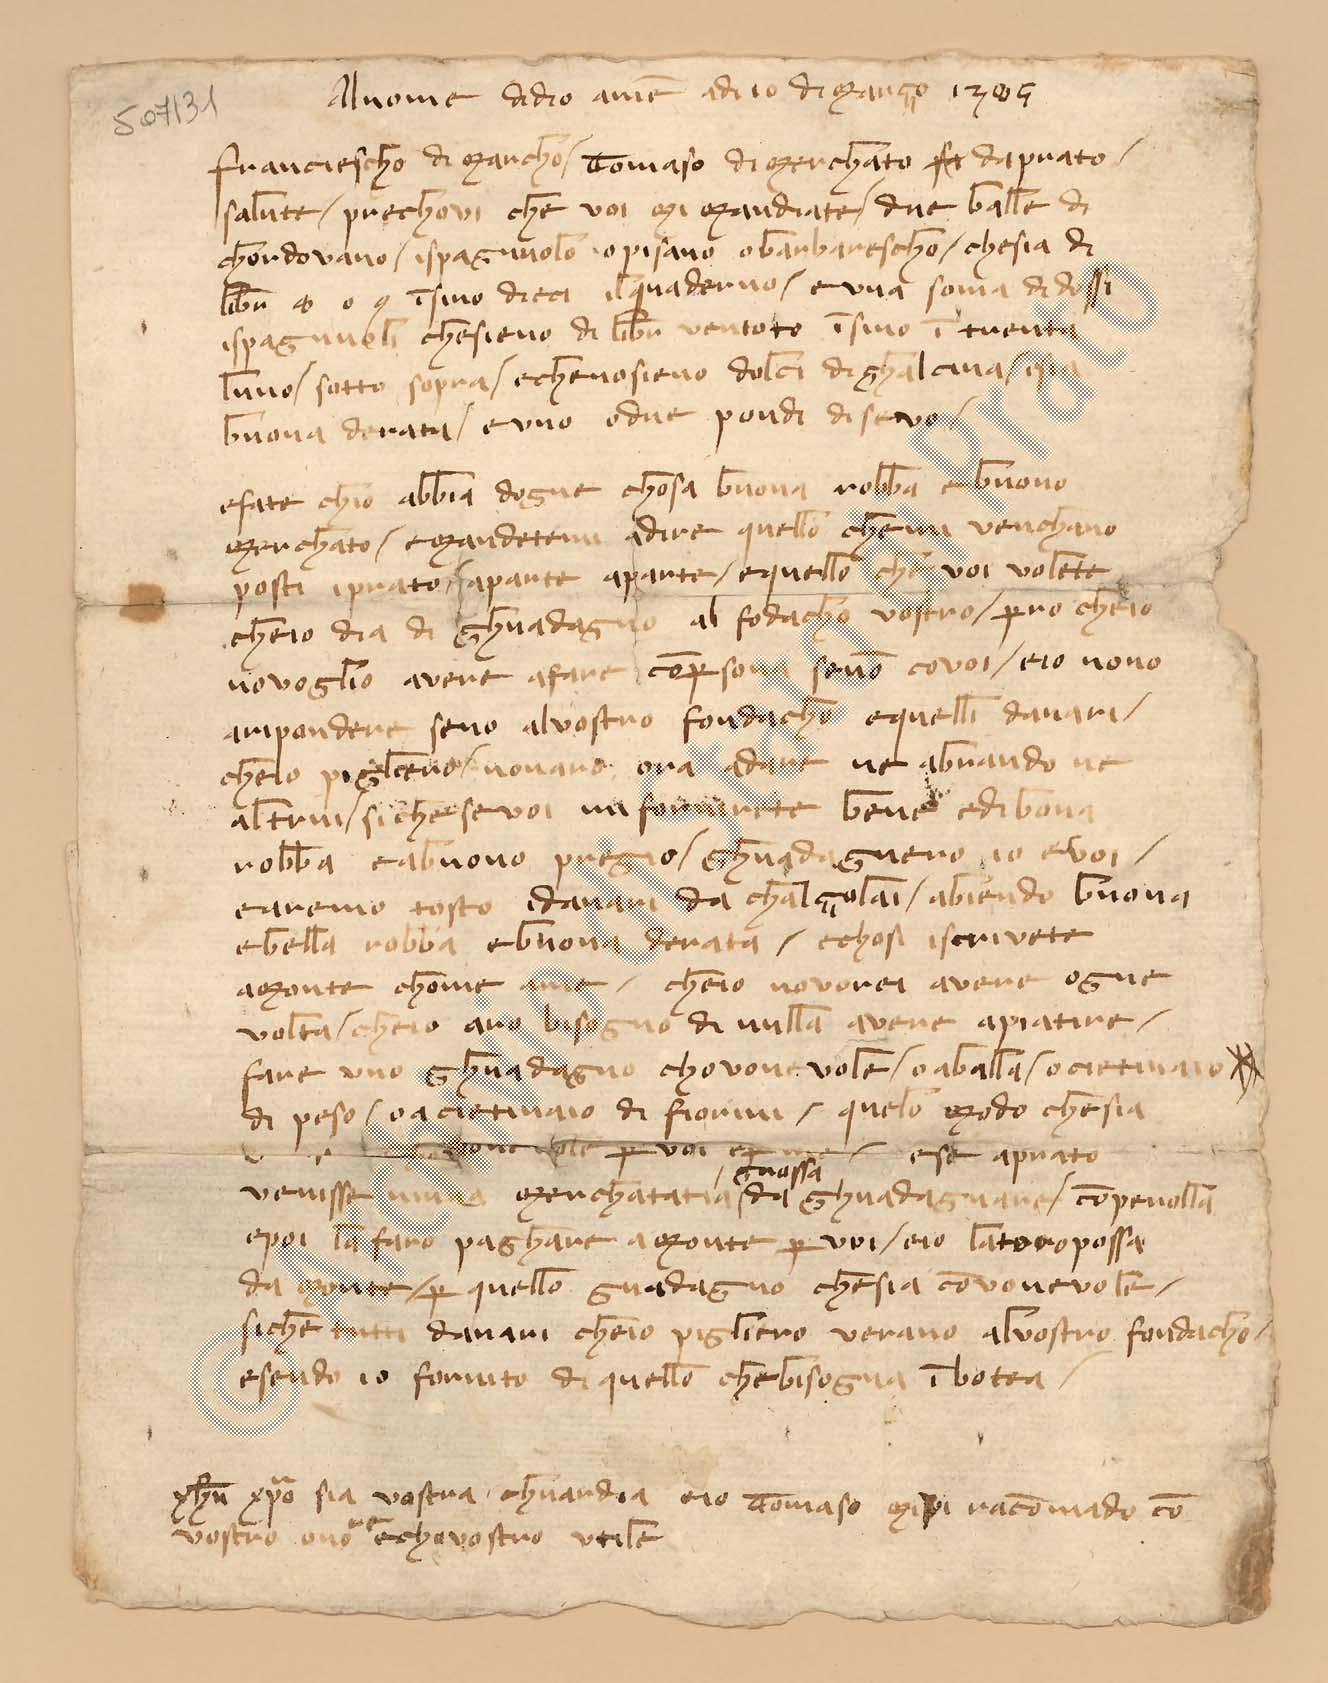 507131
Al nome di dio amē adi 10 di março 1385
franciescho di marcho / Tomaso di merchato daprato /
salute / prechovi che voi mi mandiate / due balle di
chordovano / ispagnuolo o pisano o barbarescho / che sia di
libr 8 o 9 īsino dieci il quaderno / e una soma di dossi
ispagnuoli che sieno di libr ventoto īsino ī trenta
luno / sotto sopra / e che no sieno dolci di ghalcina / e sia
buona derata / e uno o due pondi di sevo /
e fate chio abbia dogne chosa buona robba e buono
merchato / e mandetemi a dire quello che mi venchano
posti i prato / a parte a parte / e quello che voi volete
cheio dia di ghuadagno al fodacho vostro / pro cheio
no voglio avere a fare cō persona se nō co voi / e io nono
a ripondere seno al vostro fondacho e quelli danari /
cheio pigliero / nonaro ora a dare ne a brando ne
altrui / siche se voi mi fornirete bene e di bona
robba e a buono pregio / ghuadagnero io e voi /
e aremo tosto i danari da chalçolai / abiendo buona
e bella robba e buona derata / e chosi iscrivete
a monte chome a me / cheio no vorei avere ogne
volta / cheio aro bisogno di nulla avere a piatire /
fare uno ghuadagno chovonevole / o a balla / o cietinaio
di peso / o a cietinaio di fiorini / quelo modo che sia
chovonevole p voi e p me / e se a prato
venisse niuna merchatatia / grossa da ghuadagnare / cōperolla
e poi la faro paghare a monte p voi / e io la toro possa
da monte / p quello guadagno che sia covonevole /
siche tutti danari cheio pigliero verano al vostro fondacho /
esendo io fornito di quello che bisogna ī botea /
yhū xpo sia vostra ghuardia e io Tomaso mi vi racomādo cō
vostro onore e cho vostro utile